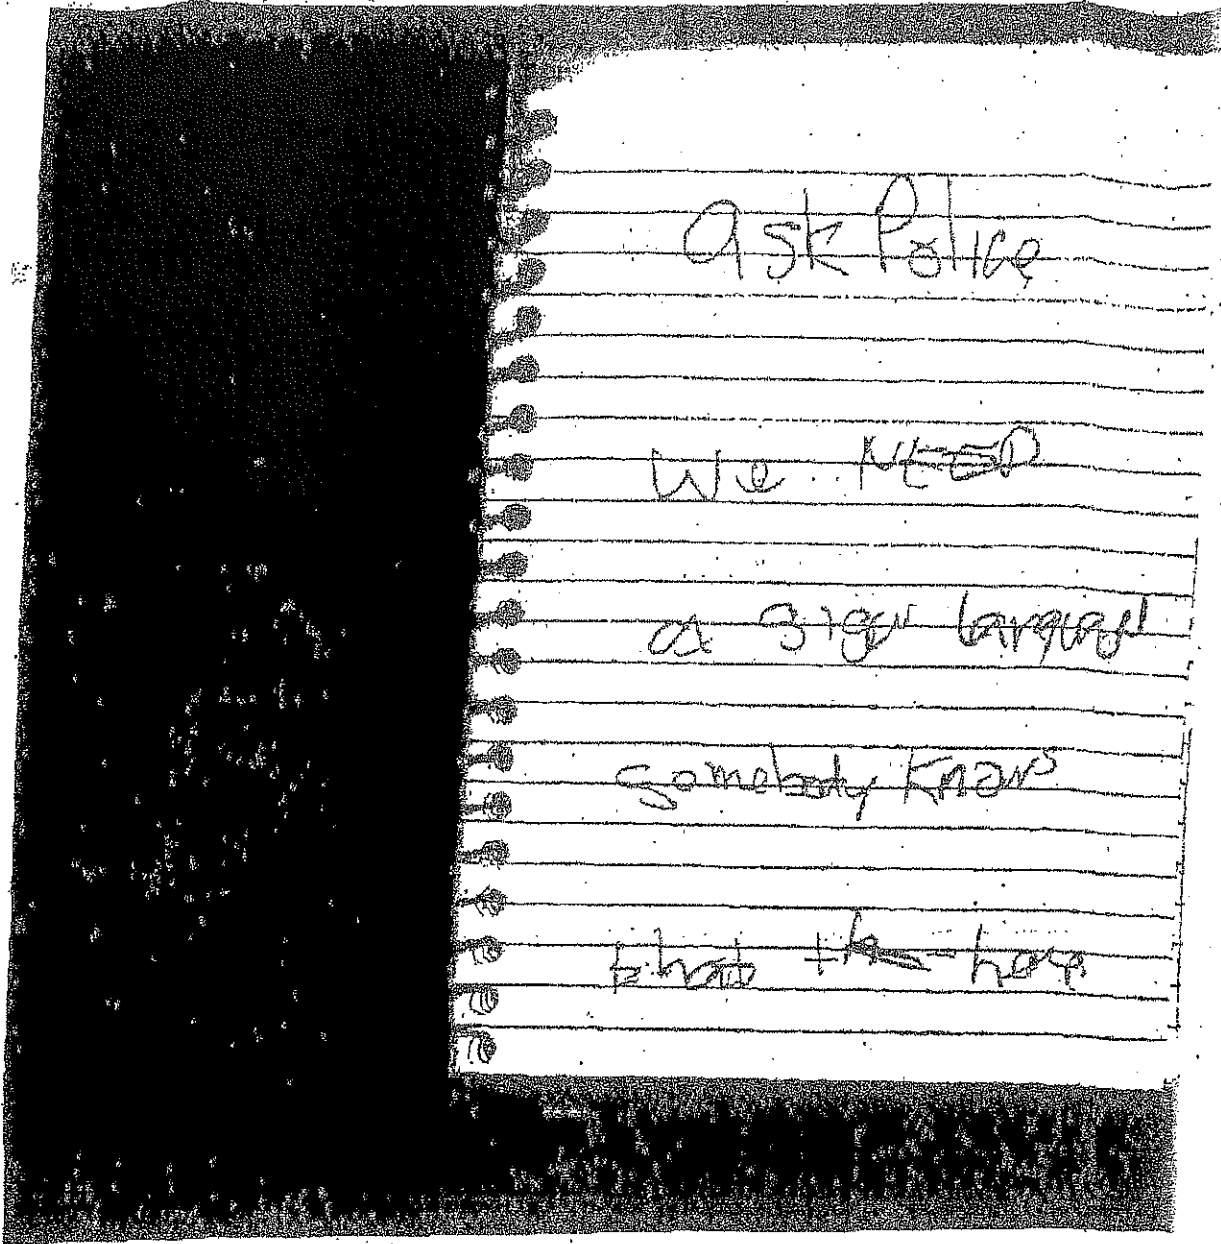 ask Police
We NEED
a sign languag
somebody Know
that the have